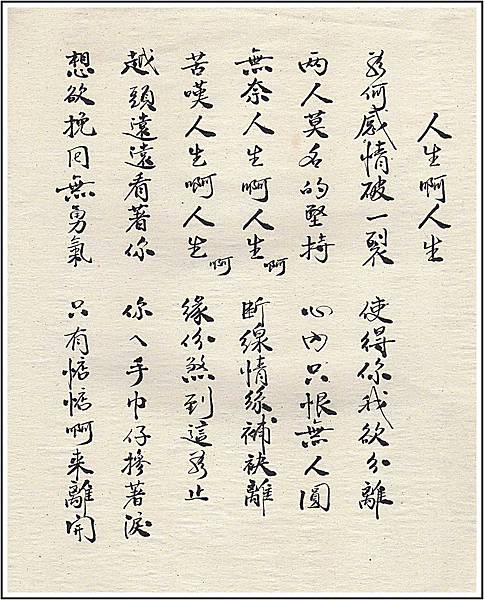 人生啊人生
為何感情破一裂 使得你我欲分離
两人莫名的堅持 心内只恨無人圓
無奈人生啊人生啊 断線情絲補袂離
苦嘆人生啊人生啊 緣份煞到這為止
越頭遠遠看著你 你ㄟ手巾仔擦著淚
想欲挽回無勇氣 只有惦惦啊来離開